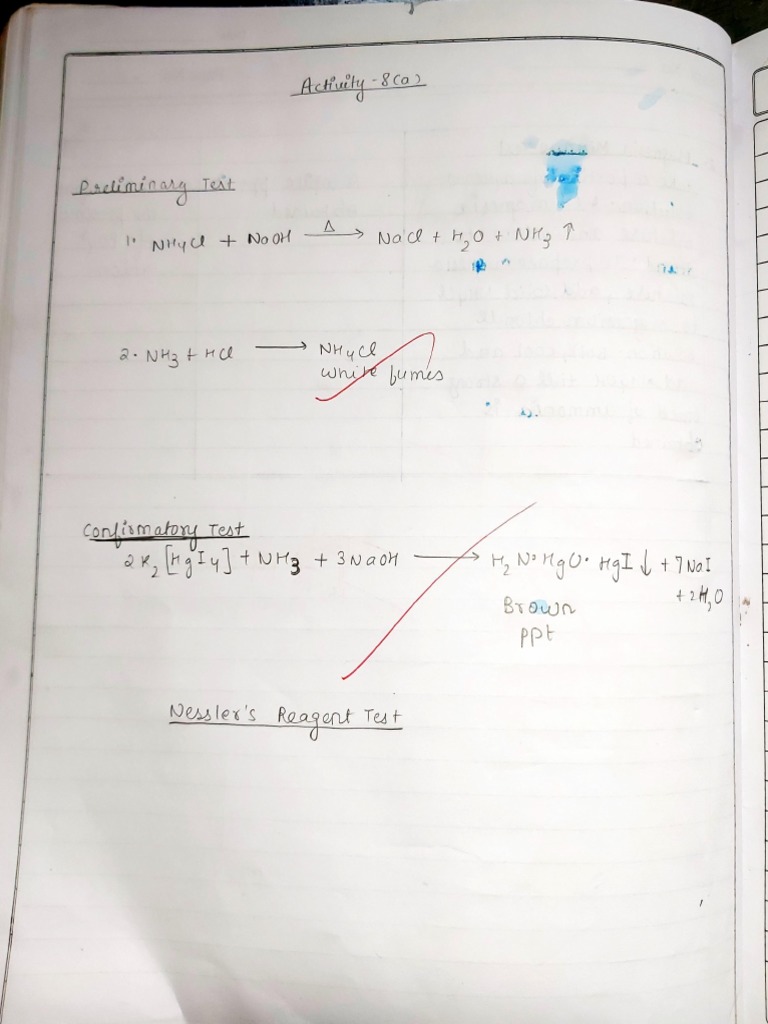 Activity - 8(a)
Preliminary Test
1. NH4Cl + NaOH —Δ→ NaCl + H2O + NH3 ↑
2. NH3 + HCl ⟶ NH4Cl
white fumes
Confirmatory Test
2K2[HgI4] + NH3 + 3NaOH ⟶ H2N·HgO·HgI ↓ + 7NaI
+ 2H2O
Brown
ppt
Nessler's Reagent Test